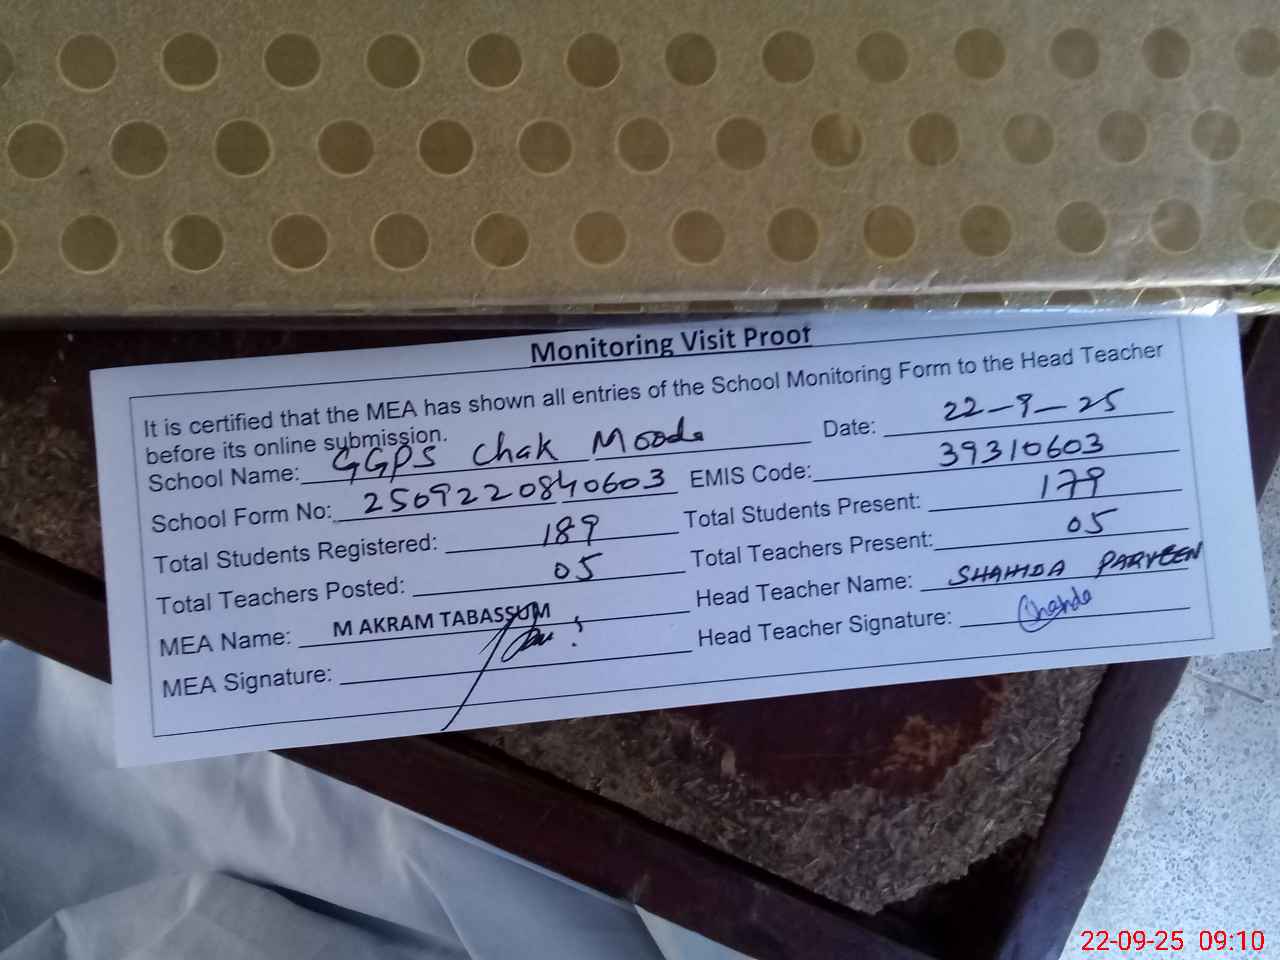 Monitoring Visit Proof
It is certified that the MEA has shown all entries of the School Monitoring Form to the Head Teacher
before its online submission.
School Name: GGPS Chak Moode Date: 22-9-25
School Form No: 2509220840603 EMIS Code: 39310603
Total Students Registered: 189 Total Students Present: 179
Total Teachers Posted: 05 Total Teachers Present: 05
MEA Name: M AKRAM TABASSUM Head Teacher Name: SHAHIDA PARVEEN
MEA Signature: Head Teacher Signature:
22-09-25 09:10